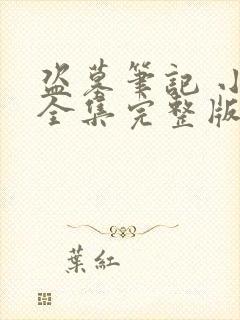 盗墓筆記 小
全集完整版
葉紅